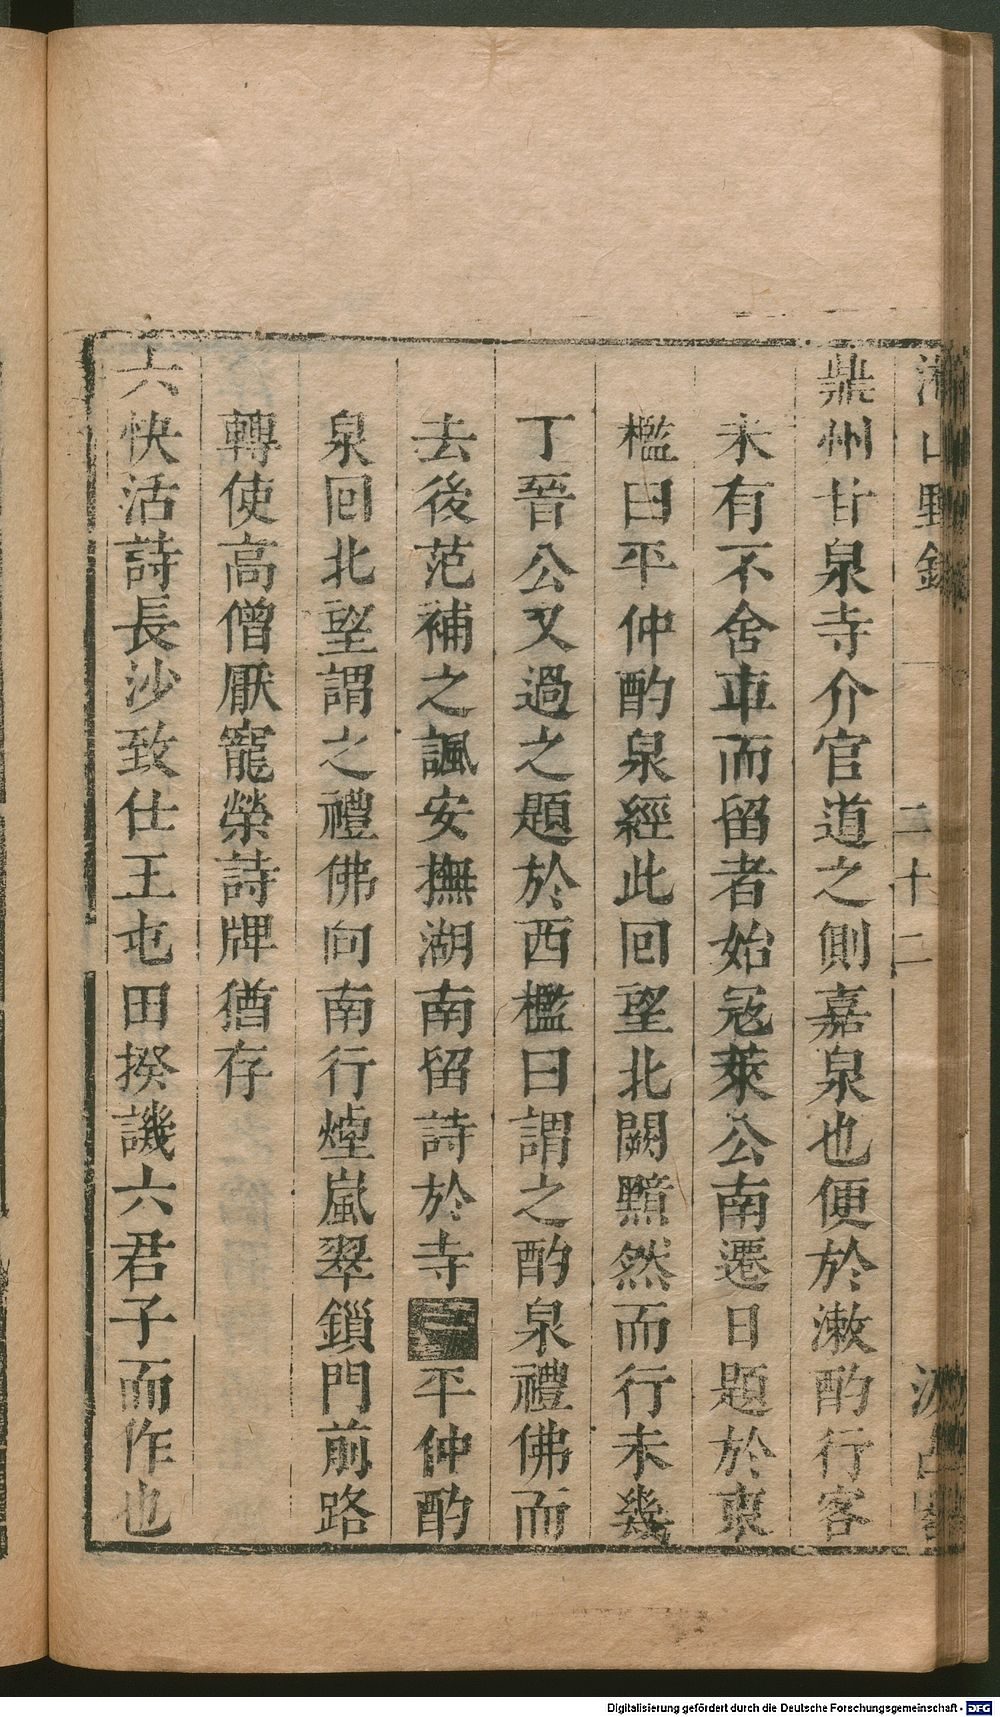 湘山野錄 二十二 汲古閣
鼎州甘泉寺介官道之側嘉泉也便於漱酌行客
未有不舍車而留者始寇萊公南遷日題於東
檻曰平仲酌泉經此回望北闕黯然而行未幾
丁晉公又過之題於西檻曰謂之酌泉禮佛而
去後范補之諷安撫湖南留詩於寺曰平仲酌
泉回北望謂之禮佛向南行煙嵐翠鎖門前路
轉使高僧厭寵榮詩牌猶存
六快活詩長沙致仕王屯田揆譏六君子而作也
Digitalisierung gefördert durch die Deutsche Forschungsgemeinschaft - DFG